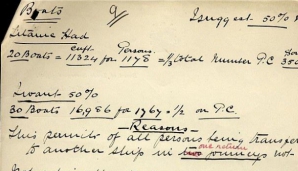 Boats 9/ I suggest 50%
Titanic Had
cuft. Persons.
20 Boats = 11324 for 1178 = ⅓ total Number P.C
I want 50%
30 Boats 16,986 for 1767 = ½ on P.C.
Reasons
This permits of all persons being transfer
one return
to another ship in two journeys not